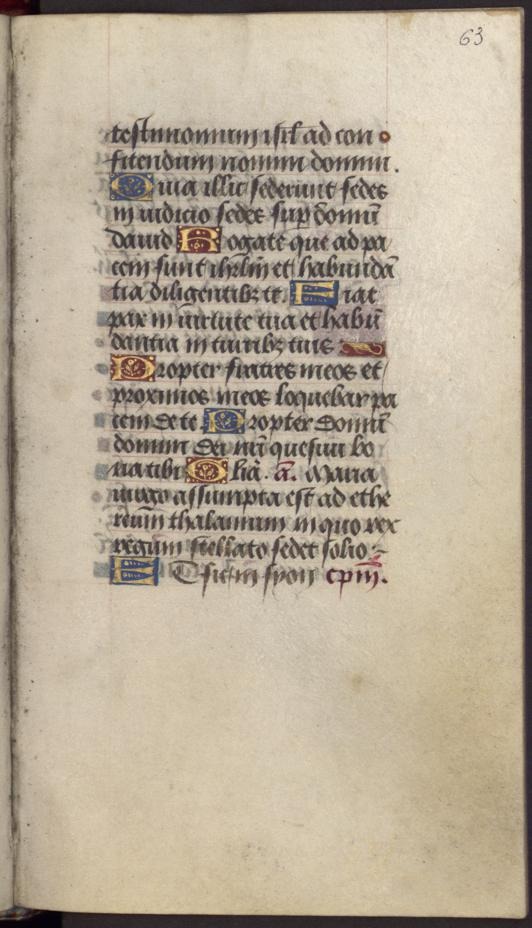 63
testimonium isrl̄ ad con
fitendum nomini domini.
Quia illic sederunt sedes
in iudicio sedes sup domū
dauid Rogate que ad pa
cem sunt ihrl̄m et habundā
tia diligentibꝫ te. Fiat
pax in uirtute tua et habū
dantia in turribꝫ tuis
Propter fratres meos et
proximos meos loquebar pa
cem de te Propter domū
domini dei nr̄i quesiui bo
na tibi Gl̄ia. a̅. Maria
uirgo assumpta est ad ethe
reum thalamum in quo rex
regum stellato sedet solio
ET sic in syon cpm̄.